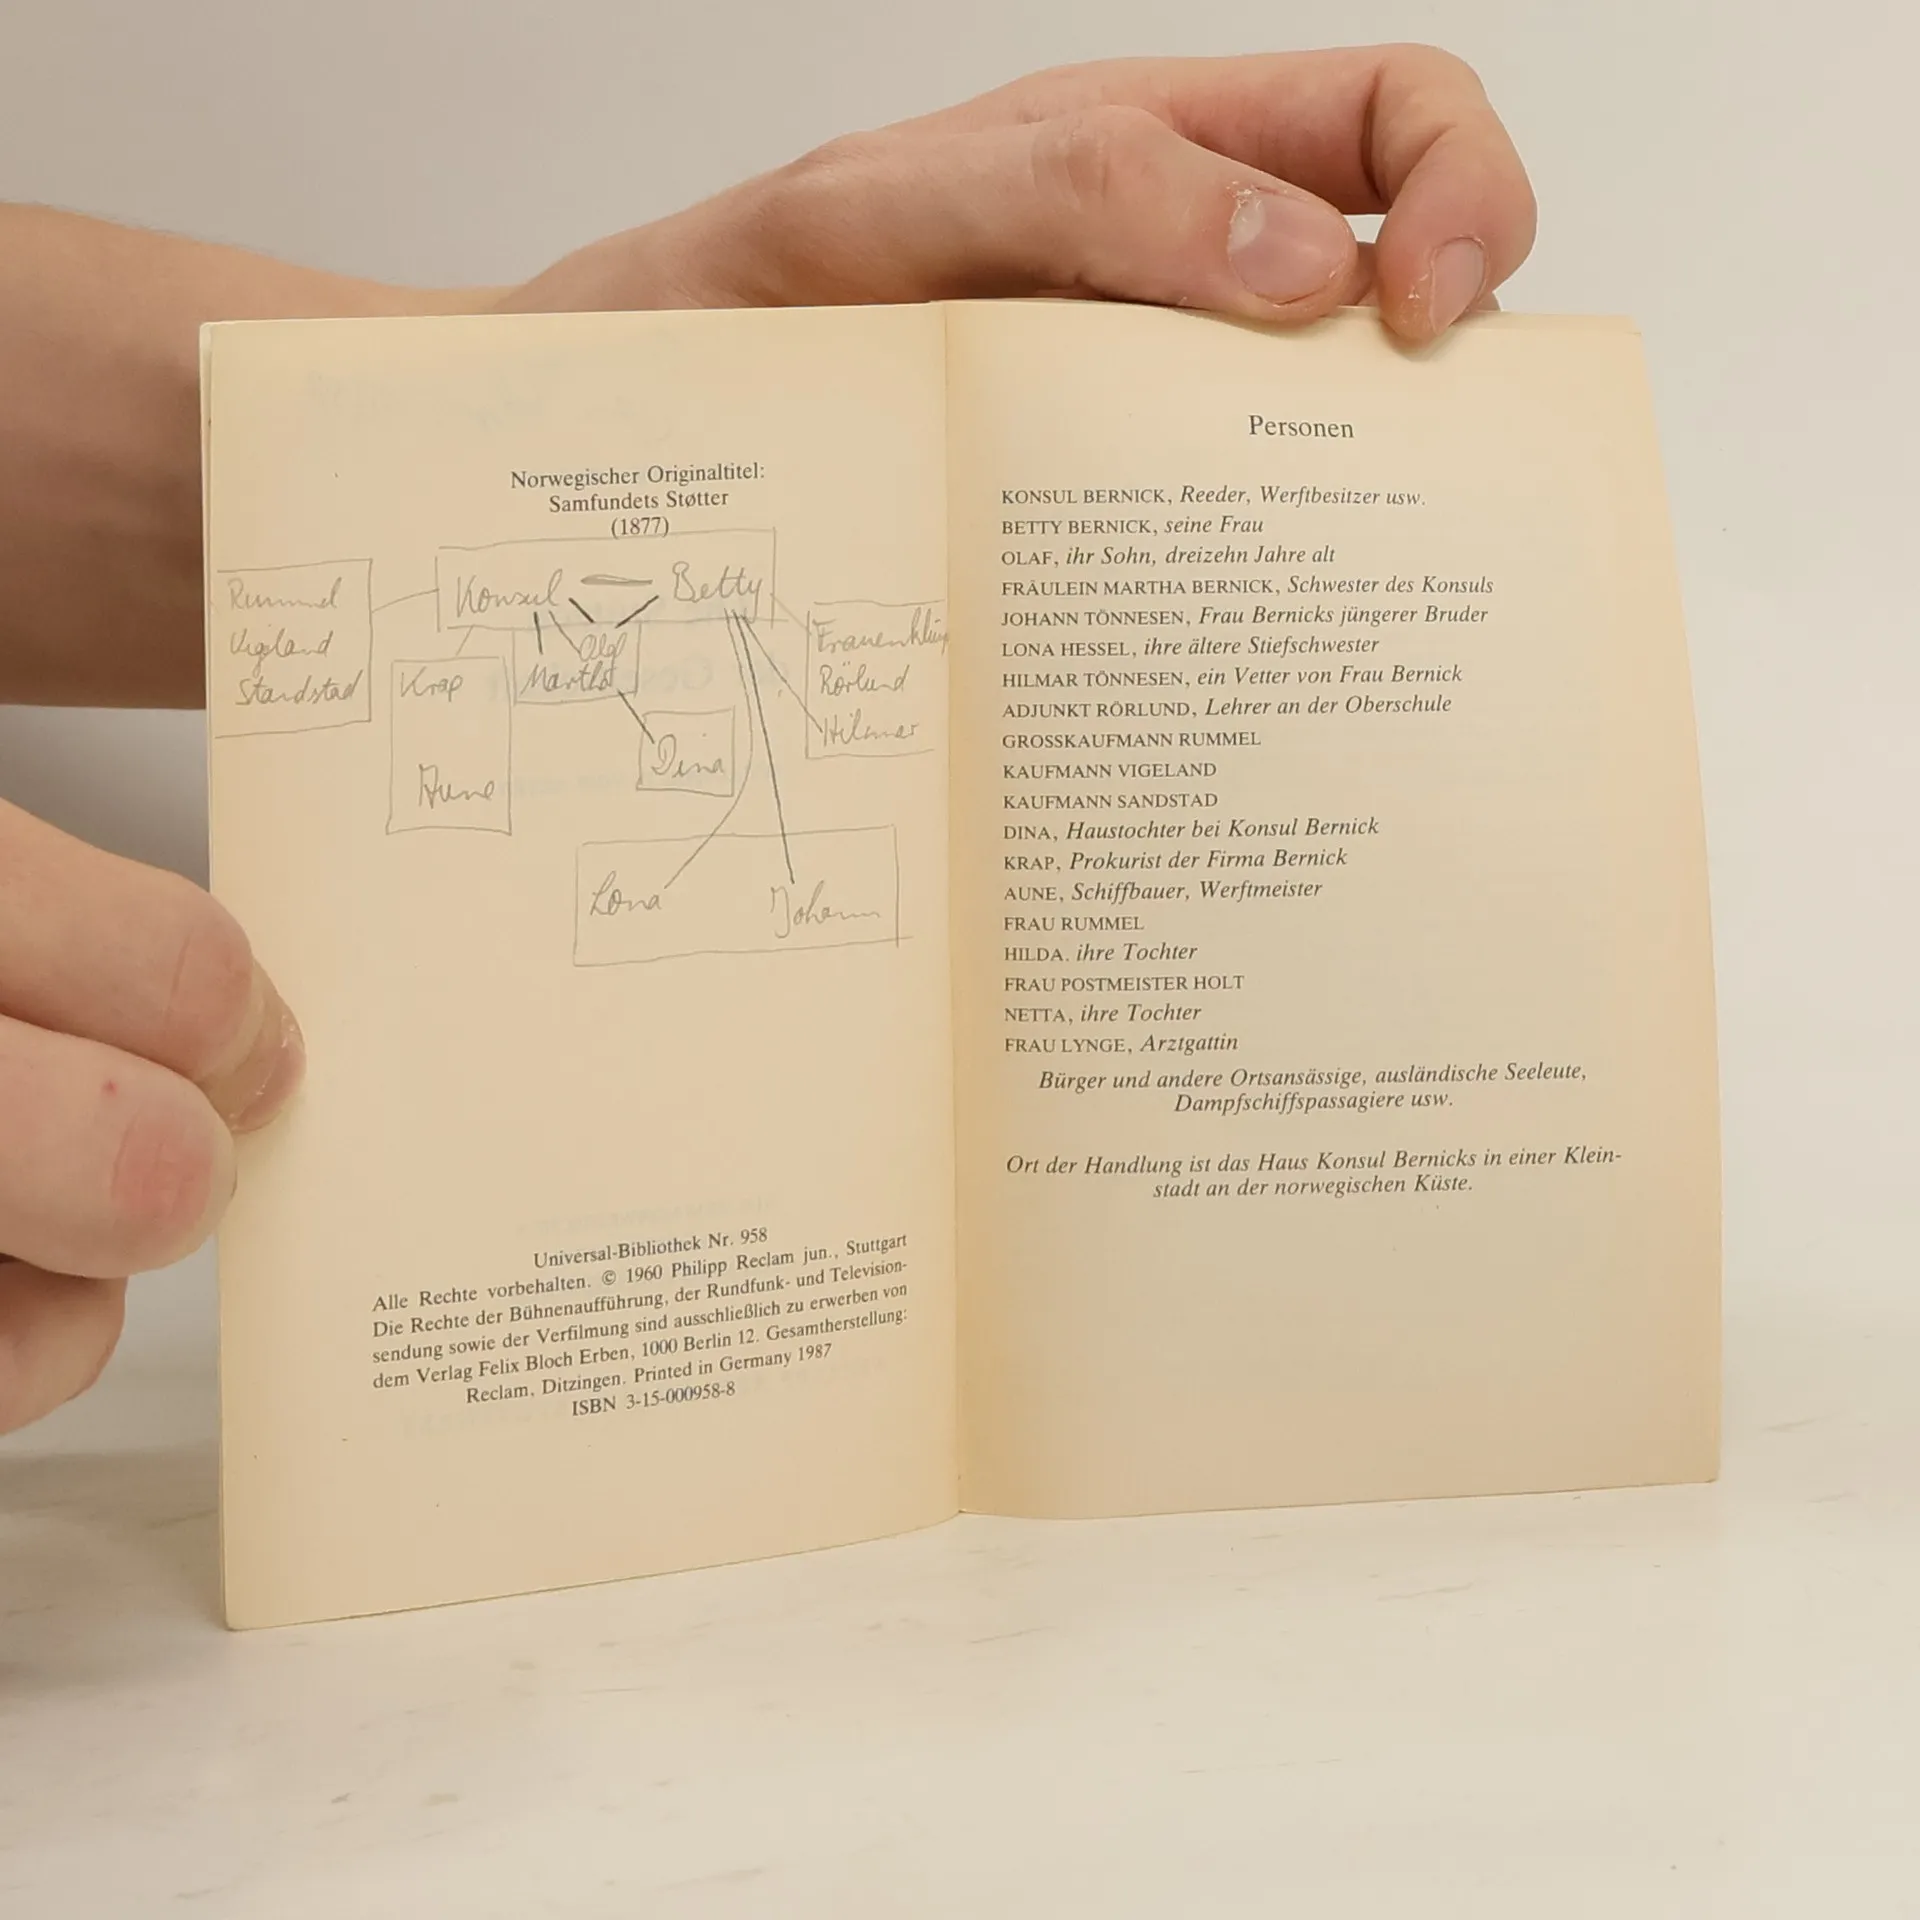 Norwegischer Originaltitel:
Samfundets Støtter
(1877)
Konsul Betty
Rummel
Vigeland
Standstad
Krap
Aune
Olaf
Martha
Dina
Rörlund
Hilmar
Lona Johann
Universal-Bibliothek Nr. 958
Alle Rechte vorbehalten. © 1960 Philipp Reclam jun., Stuttgart
Die Rechte der Bühnenaufführung, der Rundfunk- und Television-
sendung sowie der Verfilmung sind ausschließlich zu erwerben von
dem Verlag Felix Bloch Erben, 1000 Berlin 12. Gesamtherstellung:
Reclam, Ditzingen. Printed in Germany 1987
ISBN 3-15-000958-8
Personen
KONSUL BERNICK, Reeder, Werftbesitzer usw.
BETTY BERNICK, seine Frau
OLAF, ihr Sohn, dreizehn Jahre alt
FRÄULEIN MARTHA BERNICK, Schwester des Konsuls
JOHANN TÖNNESEN, Frau Bernicks jüngerer Bruder
LONA HESSEL, ihre ältere Stiefschwester
HILMAR TÖNNESEN, ein Vetter von Frau Bernick
ADJUNKT RÖRLUND, Lehrer an der Oberschule
GROSSKAUFMANN RUMMEL
KAUFMANN VIGELAND
KAUFMANN SANDSTAD
DINA, Haustochter bei Konsul Bernick
KRAP, Prokurist der Firma Bernick
AUNE, Schiffbauer, Werftmeister
FRAU RUMMEL
HILDA. ihre Tochter
FRAU POSTMEISTER HOLT
NETTA, ihre Tochter
FRAU LYNGE, Arztgattin
Bürger und andere Ortsansässige, ausländische Seeleute,
Dampfschiffspassagiere usw.
Ort der Handlung ist das Haus Konsul Bernicks in einer Klein-
stadt an der norwegischen Küste.